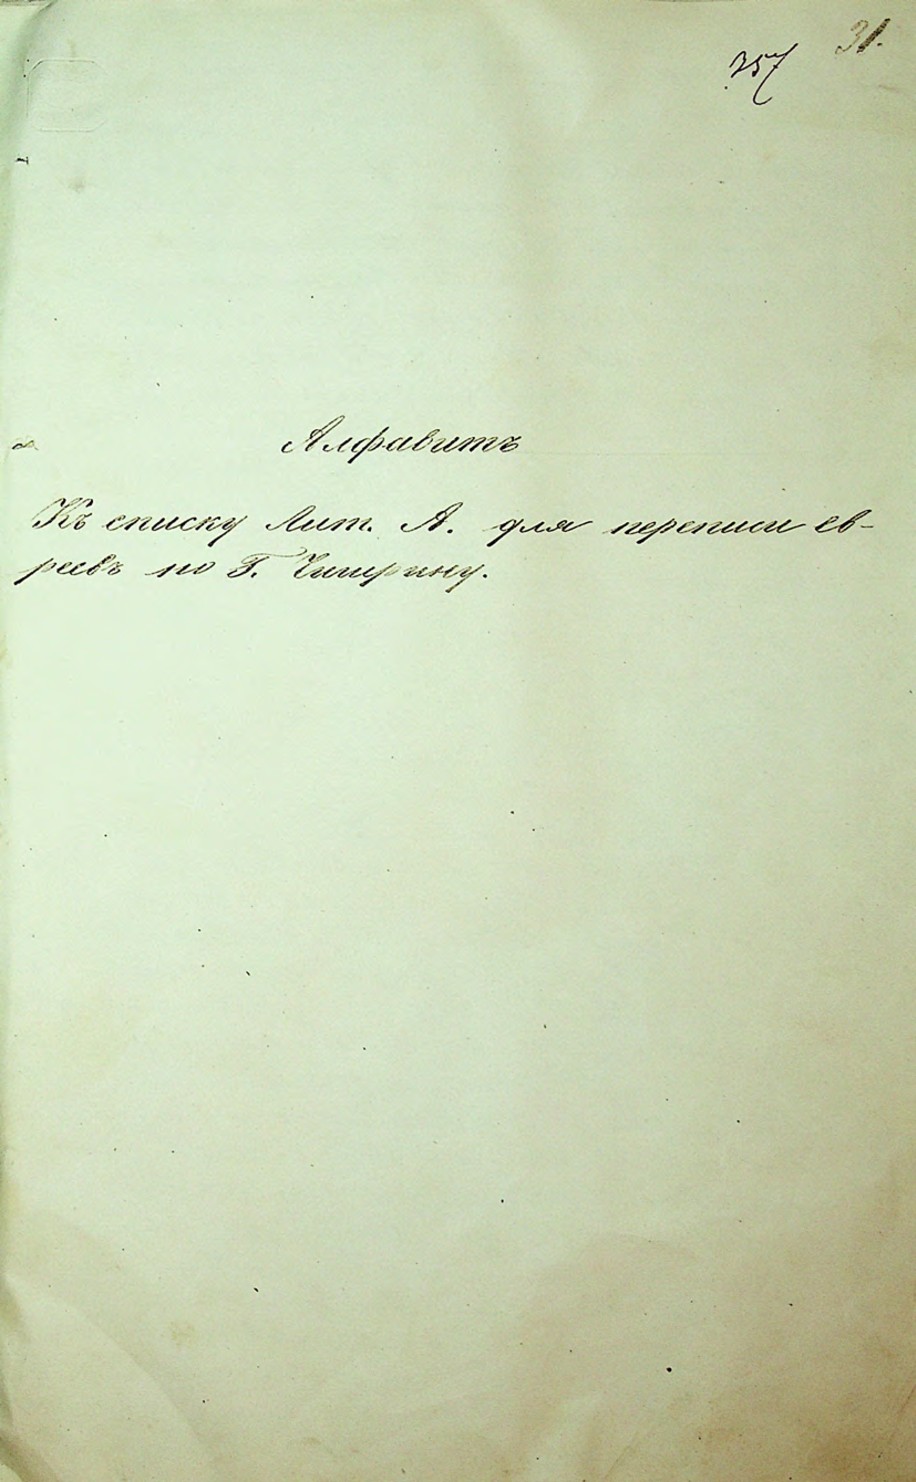 31.
357
Алфавитъ
Къ списку Лит. А. для переписи ев-
реевъ по Г. Чигирину.